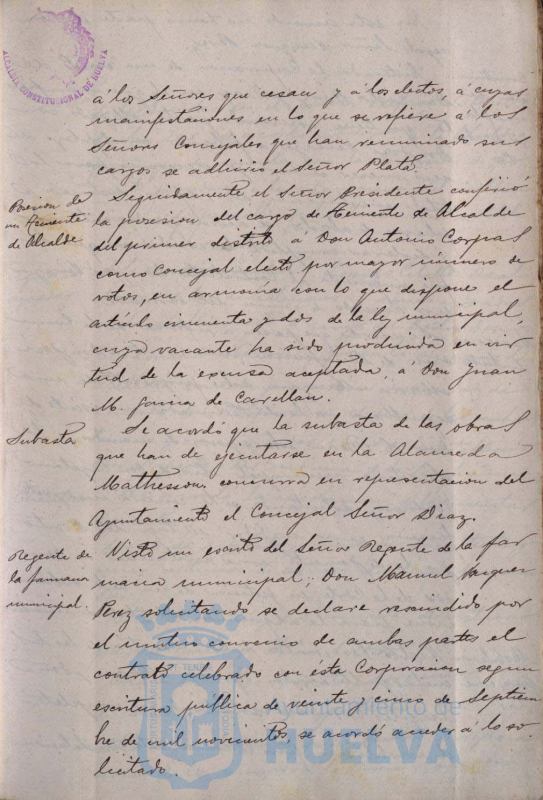 ALCALDIA CONSTITUCIONAL DE HUELVA
á los Señores que cesan y á los electos, á cuyas
manifestaciones en lo que se refiere á los
Señores Concejales que han renunciado sus
cargos se adhirió el Señor Plata.
Posesion de
un Teniente
de Alcalde
Seguidamente el Señor Presidente confirió
la posesion del cargo de Teniente de Alcalde
del primer distrito á Don Antonio Corpas
como Concejal electo por mayor número de
votos, en armonía con lo que dispone el
artículo cincuenta y dos de la ley municipal,
cuya vacante ha sido producida en vir
tud de la excusa aceptada á Don Juan
M. García de Carellan.
Subasta
Se acordó que la subasta de las obras
que han de ejecutarse en la Alameda
Mathesson concurra en representacion del
Ayuntamiento el Concejal Señor Diaz.
Regente de
la farmacia
municipal.
Visto un escrito del Señor Regente de la far
macia municipal, Don Manuel Vazquez
Perez solicitando se declare rescindido por
el mutuo convenio de ambas partes el
contrato celebrado con ésta Corporacion segun
escritura pública de veinte y cinco de Septiem
bre de mil novecientos, se acordó acceder á lo so
licitado.
Ayuntamiento de
HUELVA